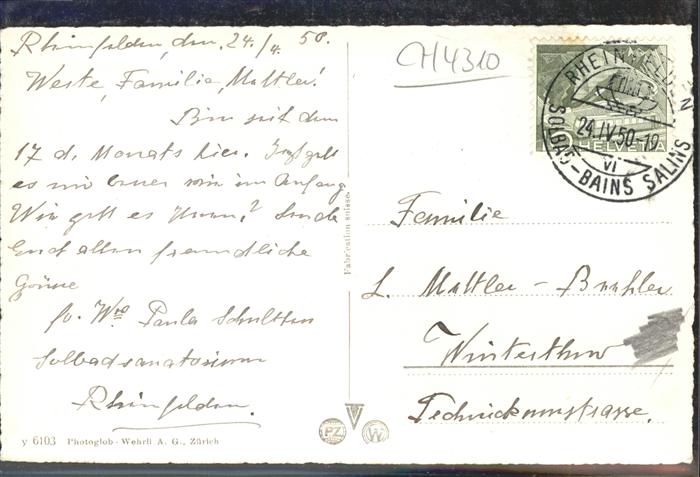 Rheinfelden, den, 24./4. 50.
Werte, Familie, Mattler!
Bin seit dem
17 d. Monats hier. Jetzt geht
es mir besser wie im Anfang
Wie geht es Ihnen? Sende
Euch allen freundliche
Grüsse
Fr. Wwe Paula
Solbadsanatorium
Rheinfelden.
y 6103 Photoglob-Wehrli A. G., Zürich
Fabrication suisse
PZ
W
CH4310
RHEINFELDEN
24.IV.50-19
VI
SOLBAD-BAINS SALINS
HELVETIA
Familie
L. Mattler-
Winterthur
Technickumstrasse.